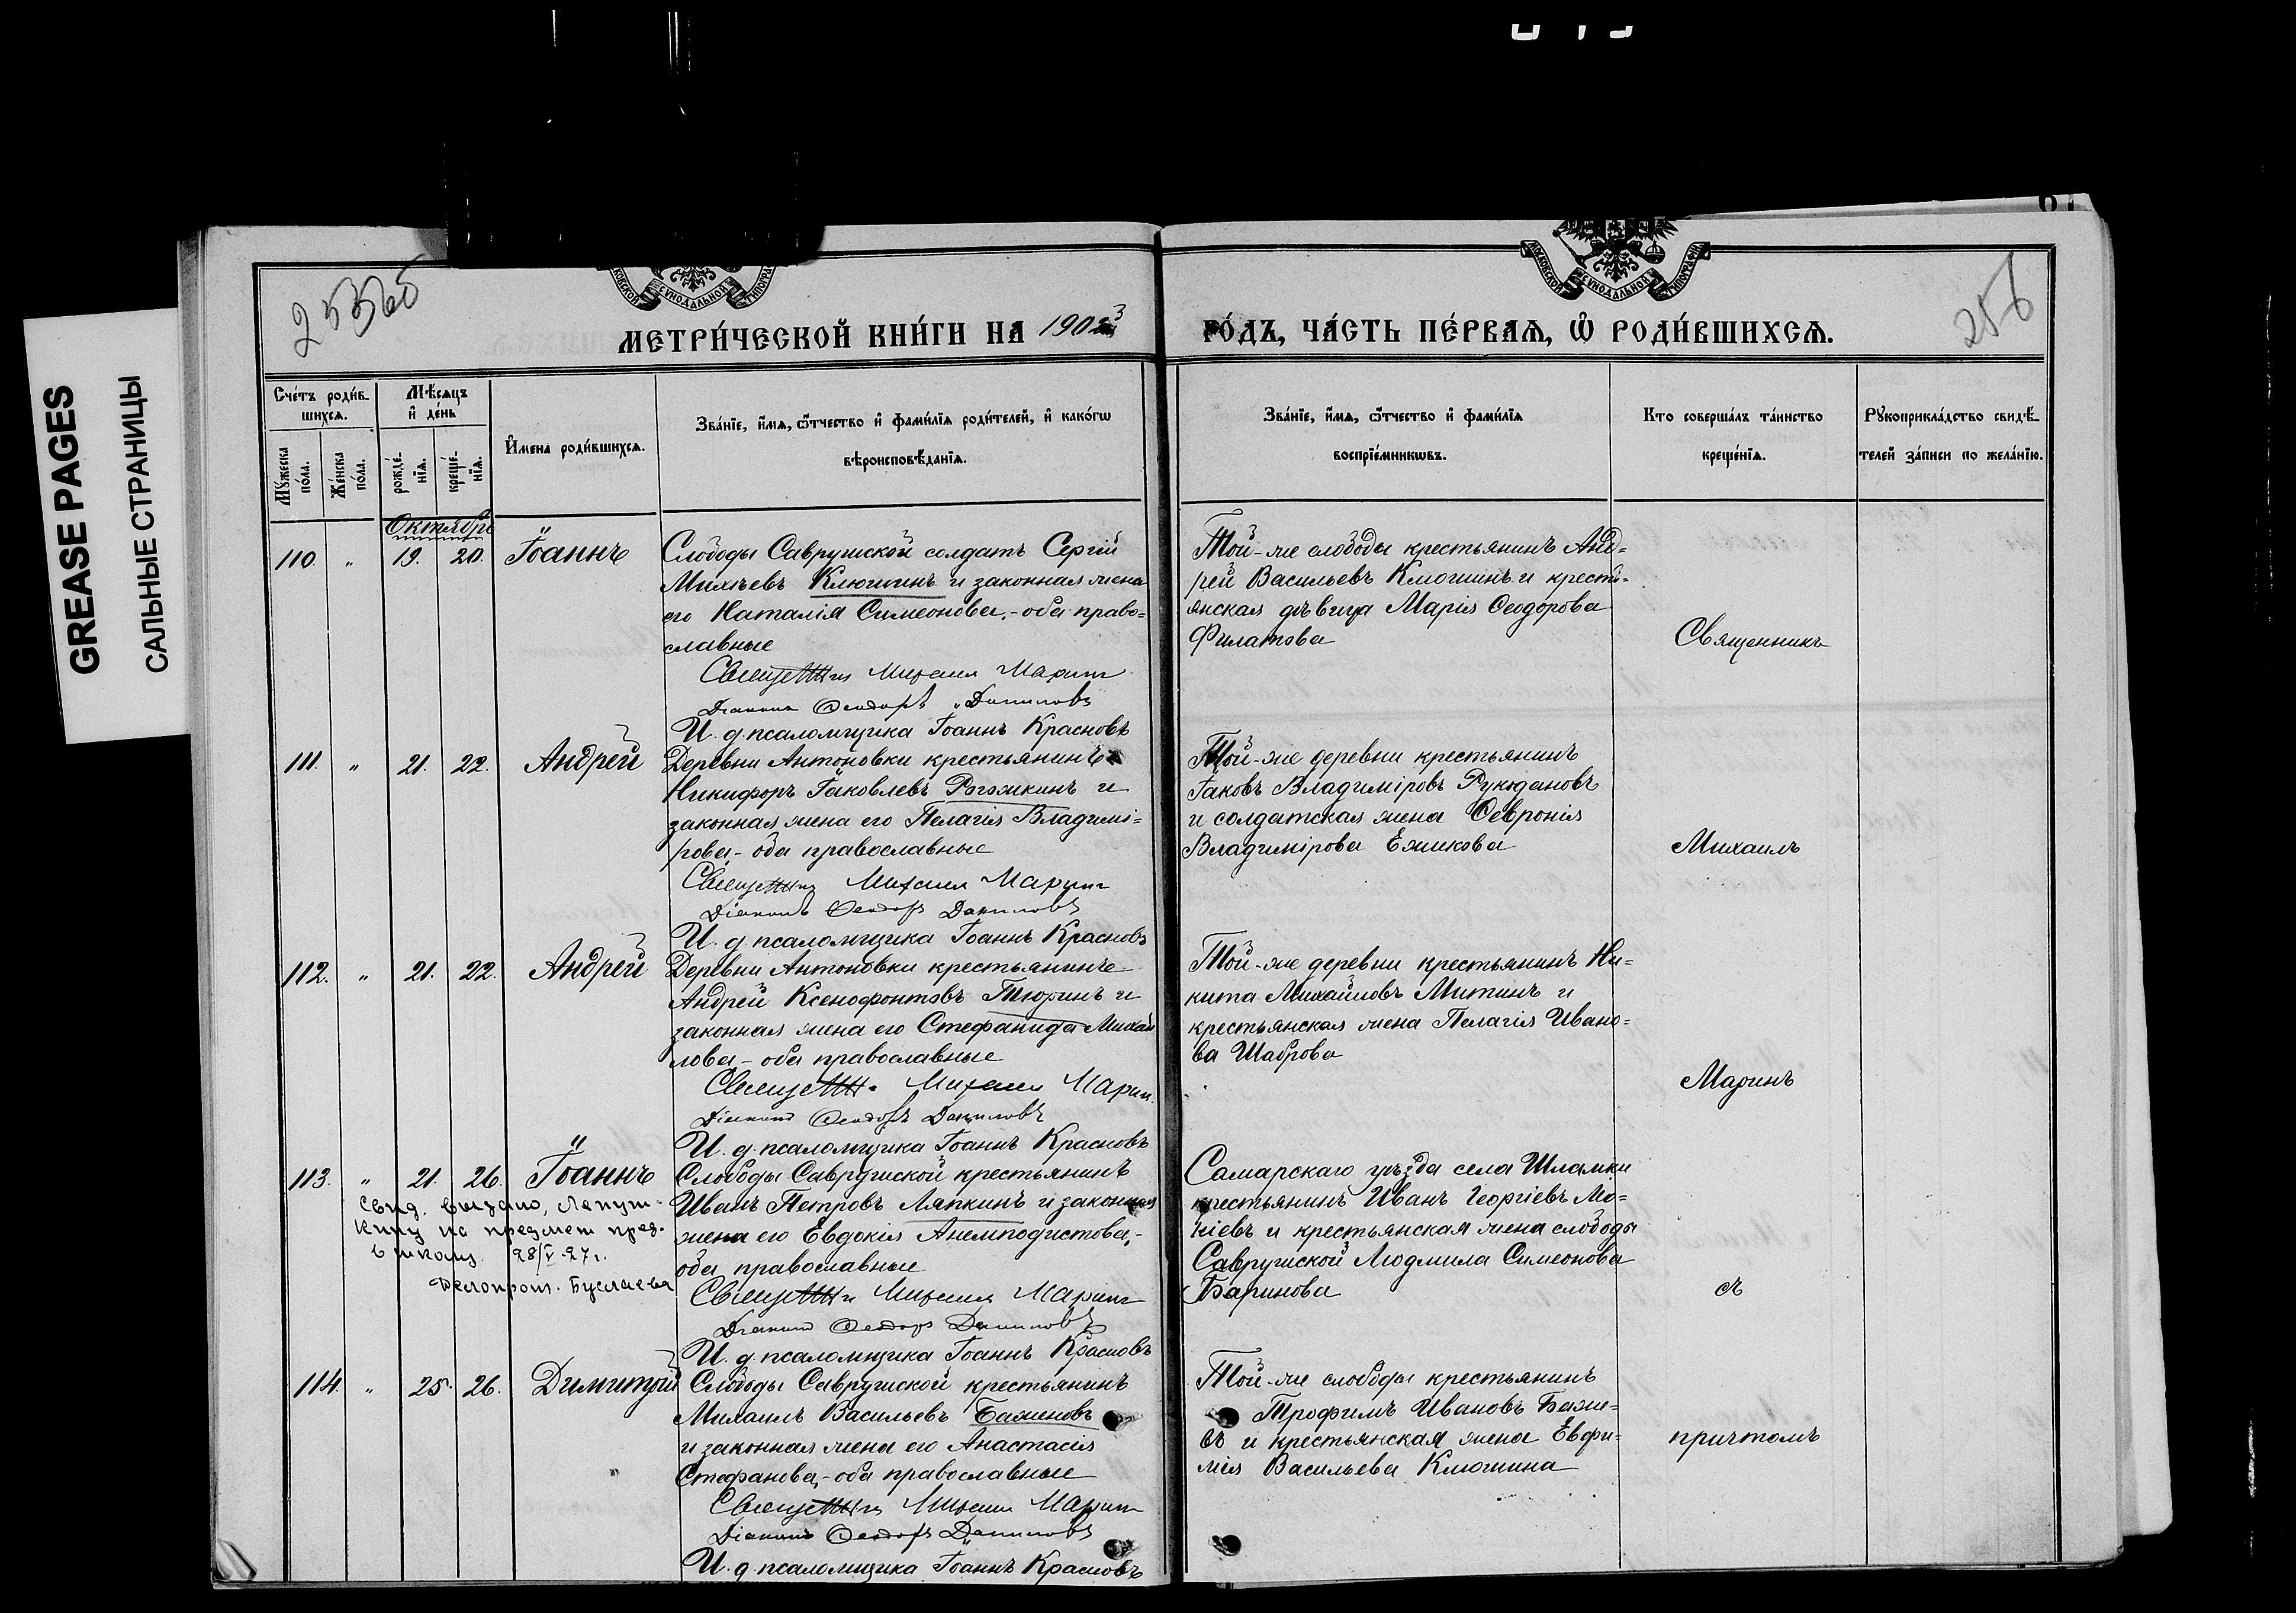 GREASE PAGES
САЛЬНЫЕ СТРАНИЦЫ
МЕТРИ́ЧЕСКОЙ КНИ́ГИ НА 1903
ГО́ДЪ, ЧА́СТЬ ПЕ́РВАѦ, Ѽ РОДИ́ВШИХСѦ.
Сче́тъ роди́в-
шихсѧ.
Мѣ́сѧцъ
и҆ де́нь
Мꙋ́жеска
по́ла.
Же́нска
по́ла.
рожде́-
нїѧ.
креще́-
нїѧ.
И҆мена роди́вшихсѧ.
Зва́нїе, и҆́мѧ, ѻ҆́тчество и҆ фами́лїѧ роди́телей, и҆ како́гѡ
вѣроисповѣ́данїѧ.
Зва́нїе, и҆́мѧ, ѻ҆́тчество и҆ фами́лїѧ
воспрїе́мникѡвъ.
Кто соверша́лъ та́инство
креще́нїѧ.
Рꙋкоприкла́дство свидѣ́-
телей за́писи по жела́нїю.
Октябрь
110. " 19. 20. Іоаннъ
Слободы Саврушской солдатъ Сергій
Михѣевъ Клюшинъ и законная жена
его Наталія Симеонова,- оба право=
славные
Священникъ Михаилъ Маринъ
Діаконъ Ѳеодоръ Даниловъ
И. д. псаломщика Іоаннъ Красновъ
Той-же слободы крестьянинъ Анд=
рей Васильевъ Клюшинъ и кресть=
янская дѣвица Марія Ѳеодорова
Филатова
Священникъ
111. " 21. 22. Андрей
Деревни Антоновки крестьянинъ
Никифоръ Іаковлевъ Рогожкинъ и
законная жена его Пелагія Владимі=
рова,- оба православные
Священникъ Михаилъ Маринъ
Діаконъ Ѳеодоръ Даниловъ
И. д. псаломщика Іоаннъ Красновъ
Той-же деревни крестьянинъ
Іаковъ Владиміровъ
и солдатская жена Ѳевронія
Владимірова
Михаилъ
112. " 21. 22. Андрей
Деревни Антоновки крестьянинъ
Андрей Ксенофонтовъ Тюринъ и
законная жена его Стефанида Михай
лова - оба православные
Священникъ Михаилъ Маринъ
Діаконъ Ѳеодоръ Даниловъ
И. д. псаломщика Іоаннъ Красновъ
Той-же деревни крестьянинъ Ни=
кита Михайловъ Митинъ и
крестьянская жена Пелагія Ивано=
ва Шаброва
Маринъ
113. " 21. 26. Іоаннъ
Свид. выдано, Ляпуш-
кину на предмет пред.
в школу. 28/V-27г.
Делопроиз. Буслаева
Слободы Саврушской крестьянинъ
Иванъ Петровъ Ляпкинъ и законная
жена его Евдокія Анемподистова,-
оба православные
Священникъ Михаилъ Маринъ
Діаконъ Ѳеодоръ Даниловъ
И. д. псаломщика Іоаннъ Красновъ
Самарскаго уѣзда села Шламки
крестьянинъ Иванъ Георгіевъ Мо=
кіевъ и крестьянская жена слободы
Саврушской Людмила Симеонова
Баринова
съ
114. " 25. 26. Димитрій
Слободы Саврушской крестьянинъ
Михаилъ Васильевъ Баженовъ
и законная жена его Анастасія
Стефанова,- оба православные
Священникъ Михаилъ Маринъ
Діаконъ Ѳеодоръ Даниловъ
И. д. псаломщика Іоаннъ Красновъ
Той-же слободы крестьянинъ
Трофимъ Ивановъ Баже=
въ и крестьянская жена Евфи=
мія Васильева Клюшина
причтомъ